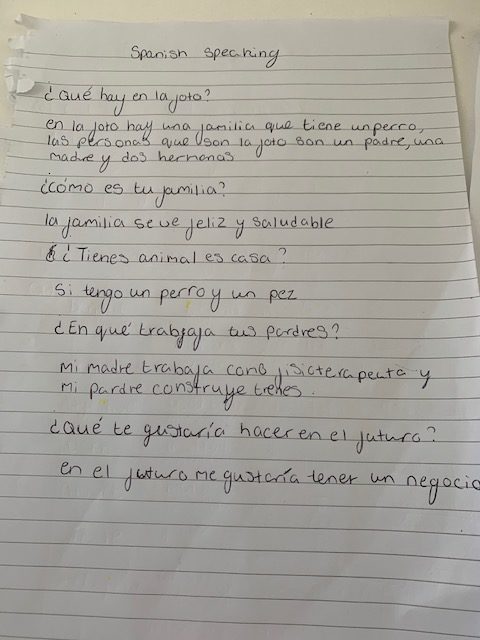 Spanish speaking
¿Qué hay en la foto?
en la foto hay una familia que tiene un perro,
las personas que son la foto son un padre, una
madre y dos hermanas
¿cómo es tu familia?
la familia se ve feliz y saludable
¿Tienes animal es casa?
si tengo un perro y un pez
¿En qué trabjaja tus pardres?
Mi madre trabaja como fisioterapeuta y
mi pardre construye trenes.
¿Qué te gustaría hacer en el futuro?
en el futuro me gustaría tener un negocio